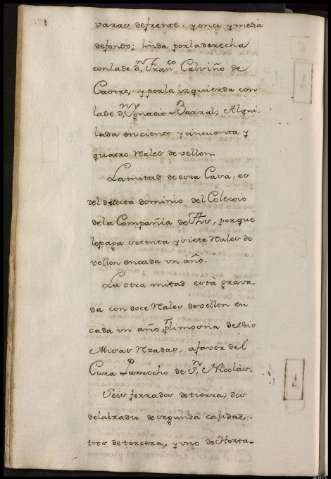 varas de frente y once y media
de fondo; linda por la derecha
con la de Dn. Franco. Calviño de
Castro, y por la izquierda con
la de Dn. Ygnacio Barral; Alqui
lada en ciento y cincuenta y
quatro Reales de vellon.
La mitad de esta Casa, es
del directo dominio del Colexio
de la Compañia de Jhs, porque
le paga setenta y siete Reales de
vellon en cada un año.
La otra mitad está grava
da con doce Reales de vellon en
cada un año pr. limosna de
Misas Rezadas, a favor del
Cura Parrocho de Sn. Nicolas.
Seis ferrados de tierra, dos
de labradio de segunda calidad,
tres de tercera, y uno de Horta-